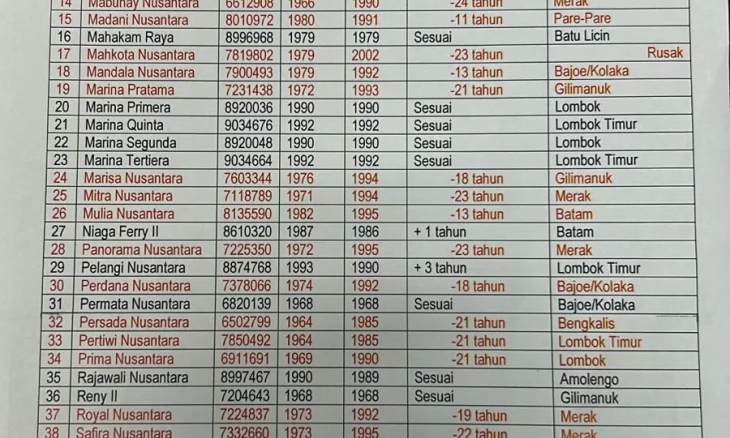 14 Mabuhay Nusantara 6612908 1966 1990 -24 tahun Merak
15 Madani Nusantara 8010972 1980 1991 -11 tahun Pare-Pare
16 Mahakam Raya 8996968 1979 1979 Sesuai Batu Licin
17 Mahkota Nusantara 7819802 1979 2002 -23 tahun Rusak
18 Mandala Nusantara 7900493 1979 1992 -13 tahun Bajoe/Kolaka
19 Marina Pratama 7231438 1972 1993 -21 tahun Gilimanuk
20 Marina Primera 8920036 1990 1990 Sesuai Lombok
21 Marina Quinta 9034676 1992 1992 Sesuai Lombok Timur
22 Marina Segunda 8920048 1990 1990 Sesuai Lombok
23 Marina Tertiera 9034664 1992 1992 Sesuai Lombok Timur
24 Marisa Nusantara 7603344 1976 1994 -18 tahun Gilimanuk
25 Mitra Nusantara 7118789 1971 1994 -23 tahun Merak
26 Mulia Nusantara 8135590 1982 1995 -13 tahun Batam
27 Niaga Ferry II 8610320 1987 1986 + 1 tahun Batam
28 Panorama Nusantara 7225350 1972 1995 -23 tahun Merak
29 Pelangi Nusantara 8874768 1993 1990 + 3 tahun Lombok Timur
30 Perdana Nusantara 7378066 1974 1992 -18 tahun Bajoe/Kolaka
31 Permata Nusantara 6820139 1968 1968 Sesuai Bajoe/Kolaka
32 Persada Nusantara 6502799 1964 1985 -21 tahun Bengkalis
33 Pertiwi Nusantara 7850492 1964 1985 -21 tahun Lombok Timur
34 Prima Nusantara 6911691 1969 1990 -21 tahun Lombok
35 Rajawali Nusantara 8997467 1990 1989 Sesuai Amolengo
36 Reny II 7204643 1968 1968 Sesuai Gilimanuk
37 Royal Nusantara 7224837 1973 1992 -19 tahun Merak
38 Safira Nusantara 7332660 1973 1995 -22 tahun Merak